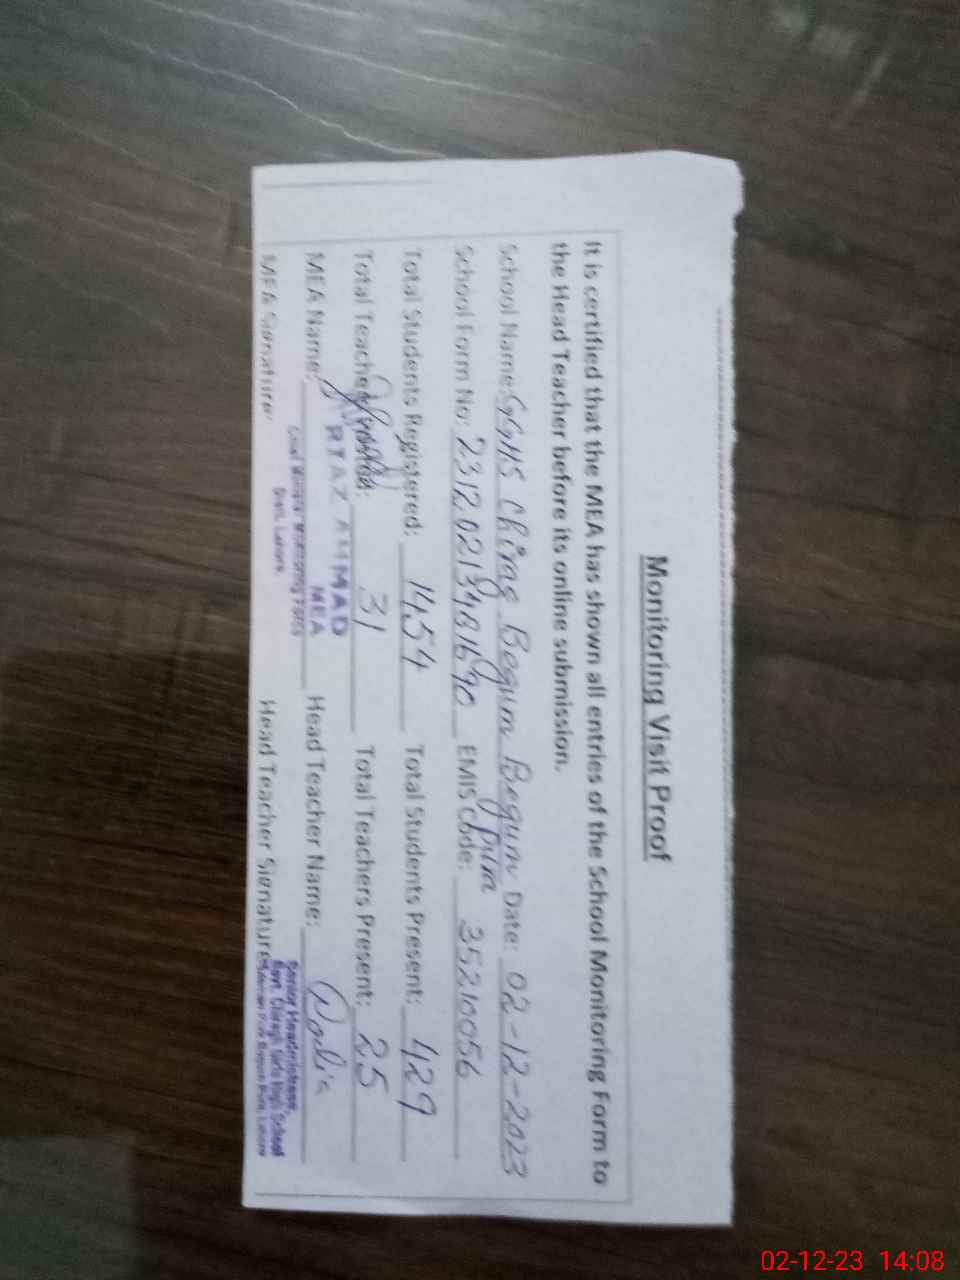 Monitoring Visit Proof
It is certified that the MEA has shown all entries of the School Monitoring Form to
the Head Teacher before its online submission.
School Name: GGHS Chirag Begum Begum Date: 02-12-2023
Pura
School Form No: EMIS Code: 35210056
Total Students Registered: 1454 Total Students Present: 429
Total Teachers: 31 Total Teachers Present: 25
MEA Name: Head Teacher Name:
AMMAD
MEA
Distt. Lahore
MEA Signature: Head Teacher Signature
Senior Headmistress,
Govt. Chiragh Girls High School
02-12-23 14:08